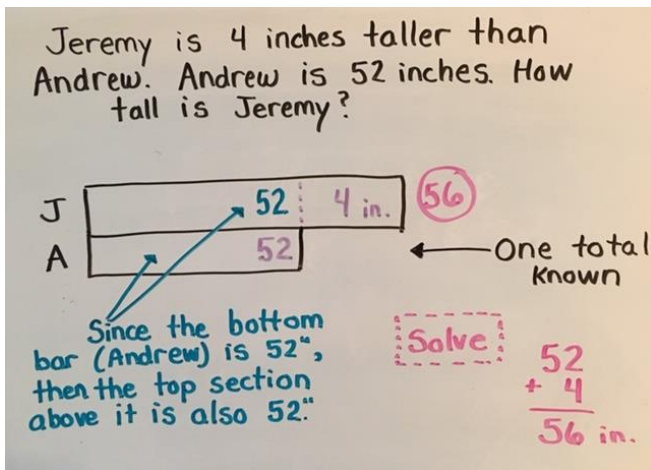 Jeremy is 4 inches taller than
Andrew. Andrew is 52 inches. How
tall is Jeremy?
J 52 4 in. 56
A 52
One total
Known
Since the bottom
bar (Andrew) is 52",
then the top section
above it is also 52".
Solve
52
+ 4
56 in.